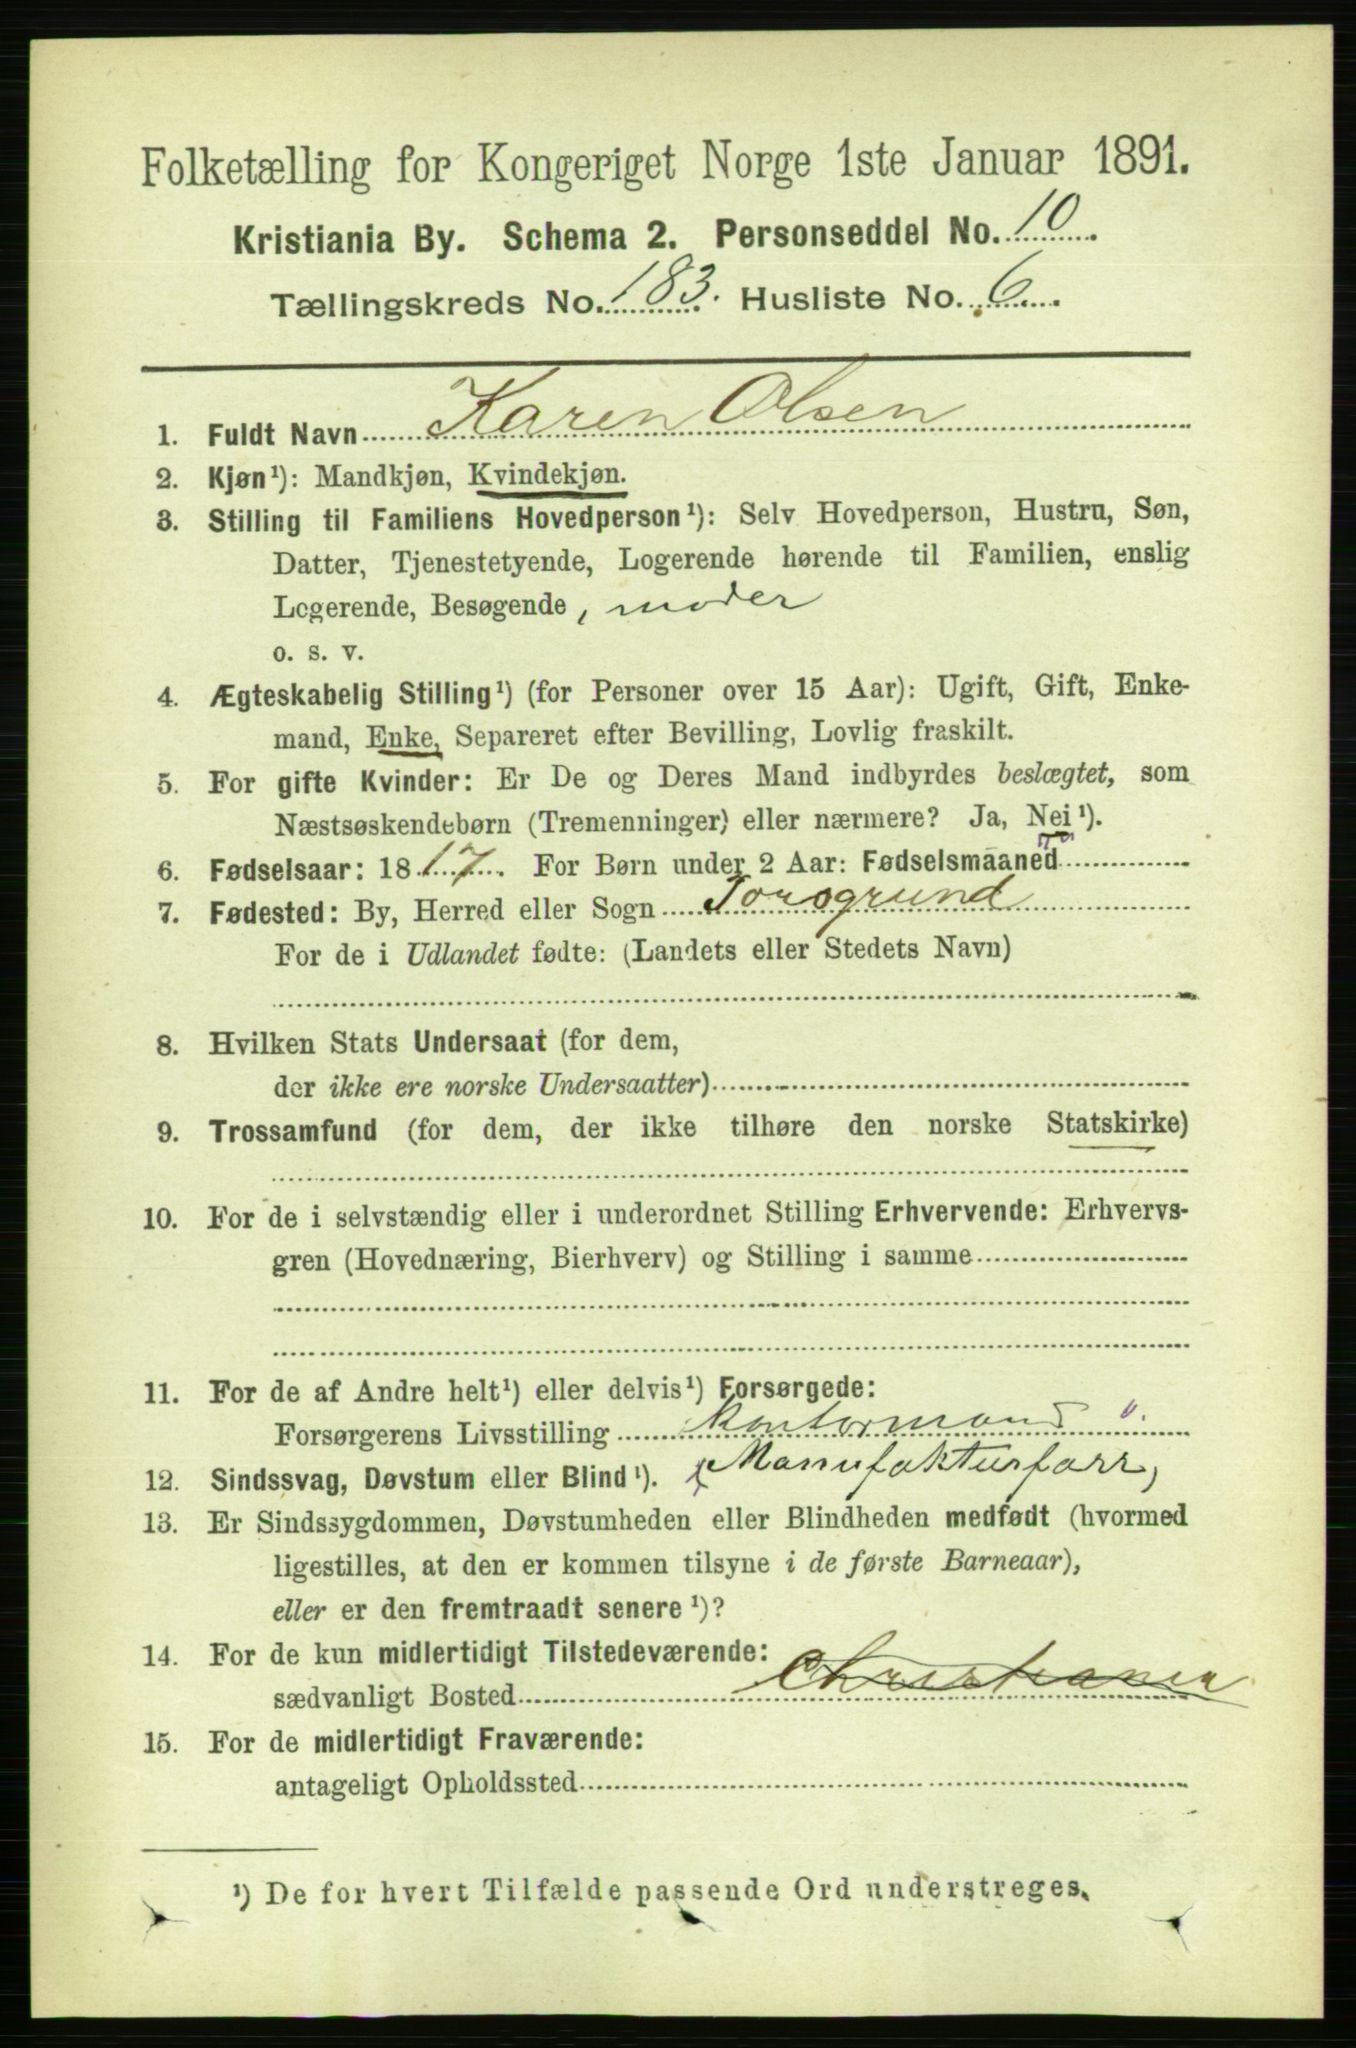 Folketælling for Kongeriget Norge 1ste Januar 1891.
Kristiania By. Schema 2. Personseddel No. 10.
Tællingskreds No. 183. Husliste No. 6.
1. Fuldt Navn Karen Olsen
2. Kjøn¹): Mandkjøn, Kvindekjøn.
3. Stilling til Familiens Hovedperson¹): Selv Hovedperson, Hustru, Søn,
Datter, Tjenestetyende, Logerende hørende til Familien, enslig
Logerende, Besøgende, moder
o. s. v.
4. Ægteskabelig Stilling¹) (for Personer over 15 Aar): Ugift, Gift, Enke-
mand, Enke, Separeret efter Bevilling, Lovlig fraskilt.
5. For gifte Kvinder: Er De og Deres Mand indbyrdes beslægtet, som
Næstsøskendebørn (Tremenninger) eller nærmere? Ja, Nei¹).
6. Fødselsaar: 1817. For Børn under 2 Aar: Fødselsmaaned
7. Fødested: By, Herred eller Sogn Porsgrund
For de i Udlandet fødte: (Landets eller Stedets Navn)
8. Hvilken Stats Undersaat (for dem,
der ikke ere norske Undersaatter)
9. Trossamfund (for dem, der ikke tilhøre den norske Statskirke)
10. For de i selvstændig eller i underordnet Stilling Erhvervende: Erhvervs-
gren (Hovednæring, Bierhverv) og Stilling i samme
11. For de af Andre helt¹) eller delvis¹) Forsørgede:
Forsørgerens Livsstilling Kontormand i
12. Sindssvag, Døvstum eller Blind¹). Manufakturforr,
13. Er Sindssygdommen, Døvstumheden eller Blindheden medfødt (hvormed
ligestilles, at den er kommen tilsyne i de første Barneaar),
eller er den fremtraadt senere¹)?
14. For de kun midlertidigt Tilstedeværende:
sædvanligt Bosted Christiania
15. For de midlertidigt Fraværende:
antageligt Opholdssted
¹) De for hvert Tilfælde passende Ord understreges.